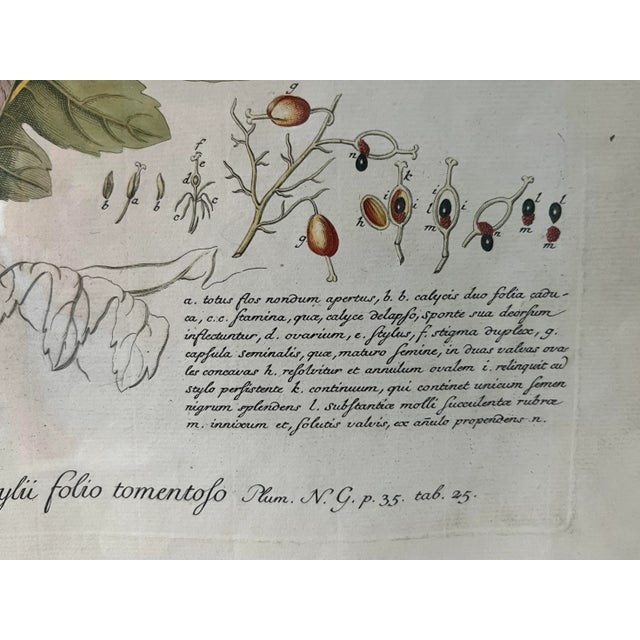 g
f
e
n
k
d
i
i
i
l
l
l
b
a
b
c
c
g
h
m
m
m
a. totus flos nondum apertus, b. b. calycis duo folia cadu-
ca, c.c. ſtamina, quæ, calyce delapſo, sponte sua deorſum
inflectuntur, d. ovarium, e. ſtylus, f. stigma duplex, g.
capſula seminalis, quæ, maturo ſemine, in duas valvas ova-
les concavas h. reſolvitur et annulum ovalem i. relinquit cu
stylo persistente k. continuum, qui continet unicum ſemen
nigrum splendens l. substantiæ molli ſucculentæ rubræ
m. innixum et, ſolutis valvis, ex añulo propendens n.
ylii folio tomentoſo Plum. N. G. p. 35. tab. 25.